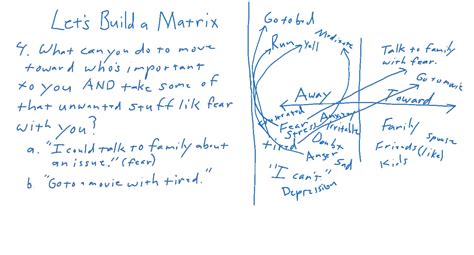 Let's Build a Matrix
4. What can you do to move
toward who's important
to you AND take some of
that unwanted stuff like fear
with you?
a. "I could talk to family about
an issue." (fear)
b "Go to a movie with tired."
Go to bed
Run
Yell
Meditate
Talk to family
with fear.
Go to movie
Away
Toward
Fear
Anxiety
Stress
Irritable
tired
Doubt
Anger
Sad
"I can't"
Depression
Family
spouse
Friends (like)
Kids